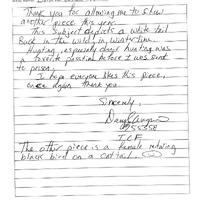 Thank you for allowing me to show
another piece this year.
This subject depicts a white tail
Buck in the wild, in winter time.
Hunting, especially deer hunting was
a favorite pastime before I was sent
to prison.
I hope everyone likes this piece,
once again thank you
Sincerely,
The other piece is a female redwing
black bird on a cattail.